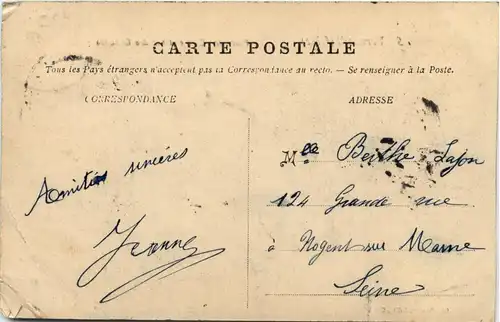 CARTE POSTALE
Tous les Pays étrangers n'acceptent pas la Correspondance au recto. — Se renseigner à la Poste.
CORRESPONDANCE
ADRESSE
Amitiés sincères
Jeanne
Mlle Berthe Lafon
124 Grande rue
à Nogent sur Marne
Seine